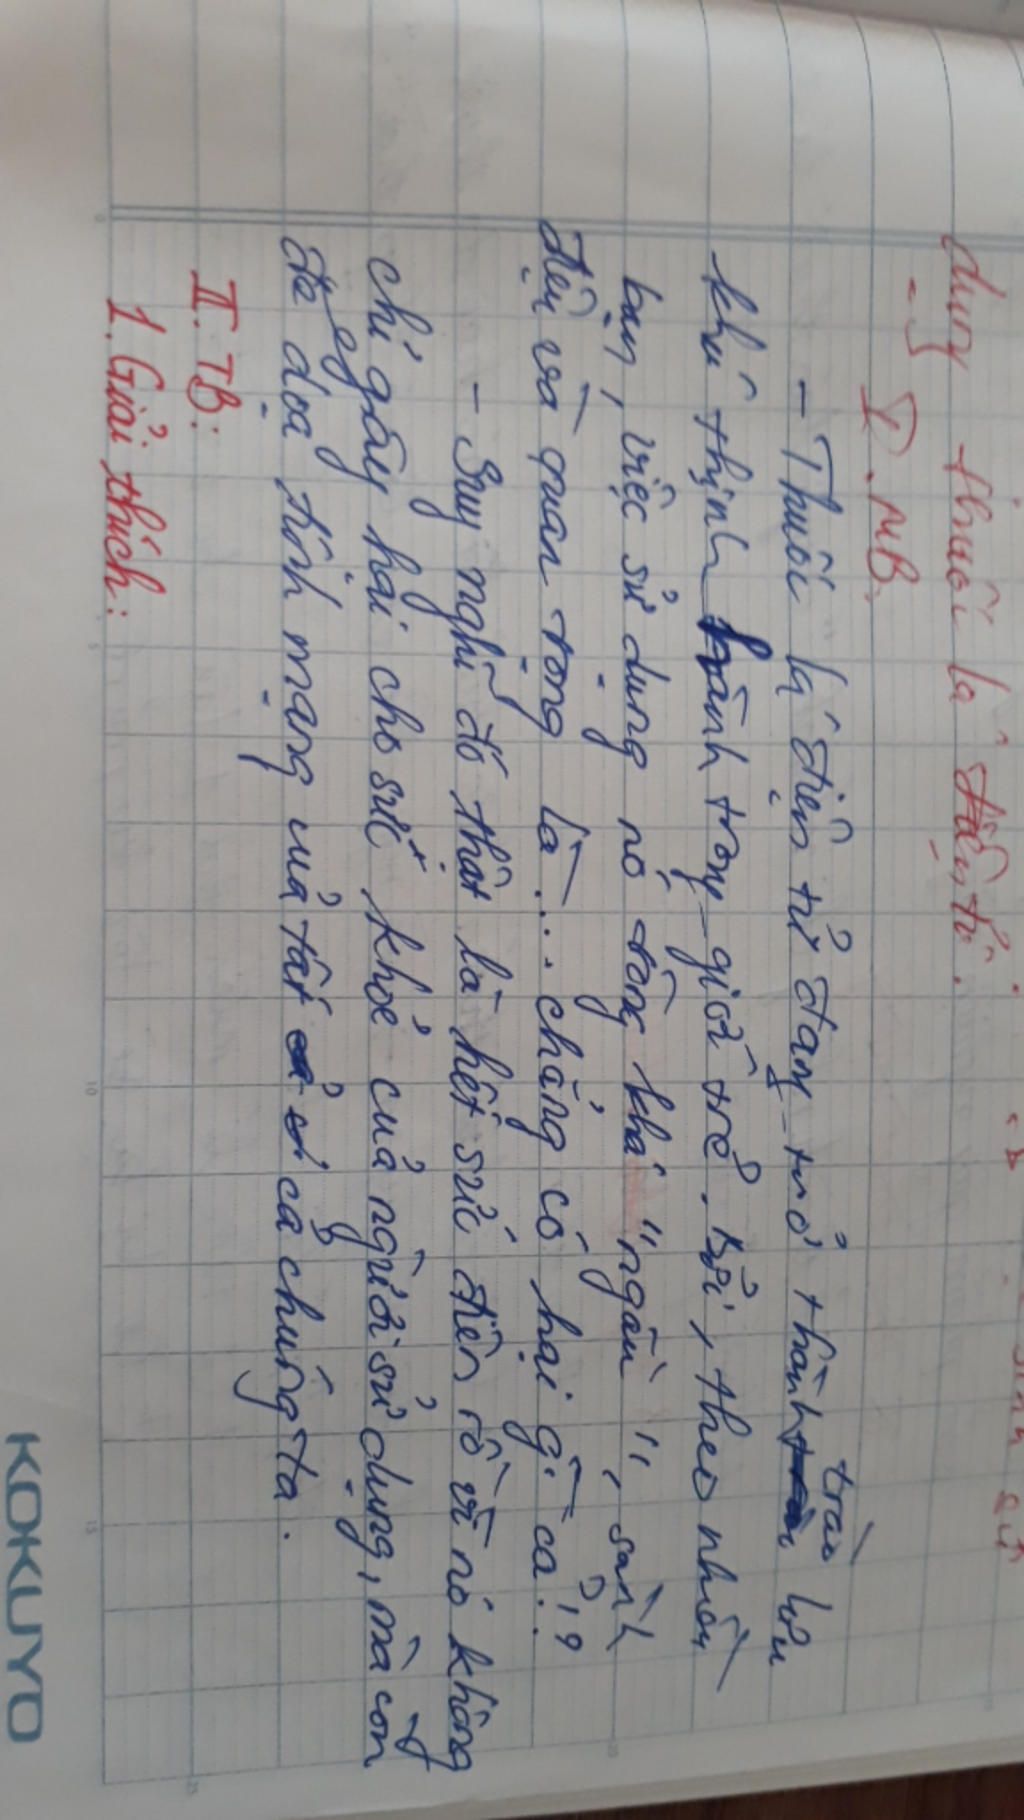 dụng thuốc lá điện tử.
I. MB.
- Thuốc lá điện tử đang trở thành trào lưu
khá thịnh hành trong giới trẻ. Bởi, theo nhiều
bạn, việc sử dụng nó trông khá "ngầu", sành
điệu và quan trọng là... chẳng có hại gì cả!?
- Suy nghĩ đó thật là hết sức điên rồ vì nó không
chỉ gây hại cho sức khỏe của người sử dụng, mà còn
đe dọa tính mạng của tất cả chúng ta.
II. TB:
1. Giải thích:
KOKUYO